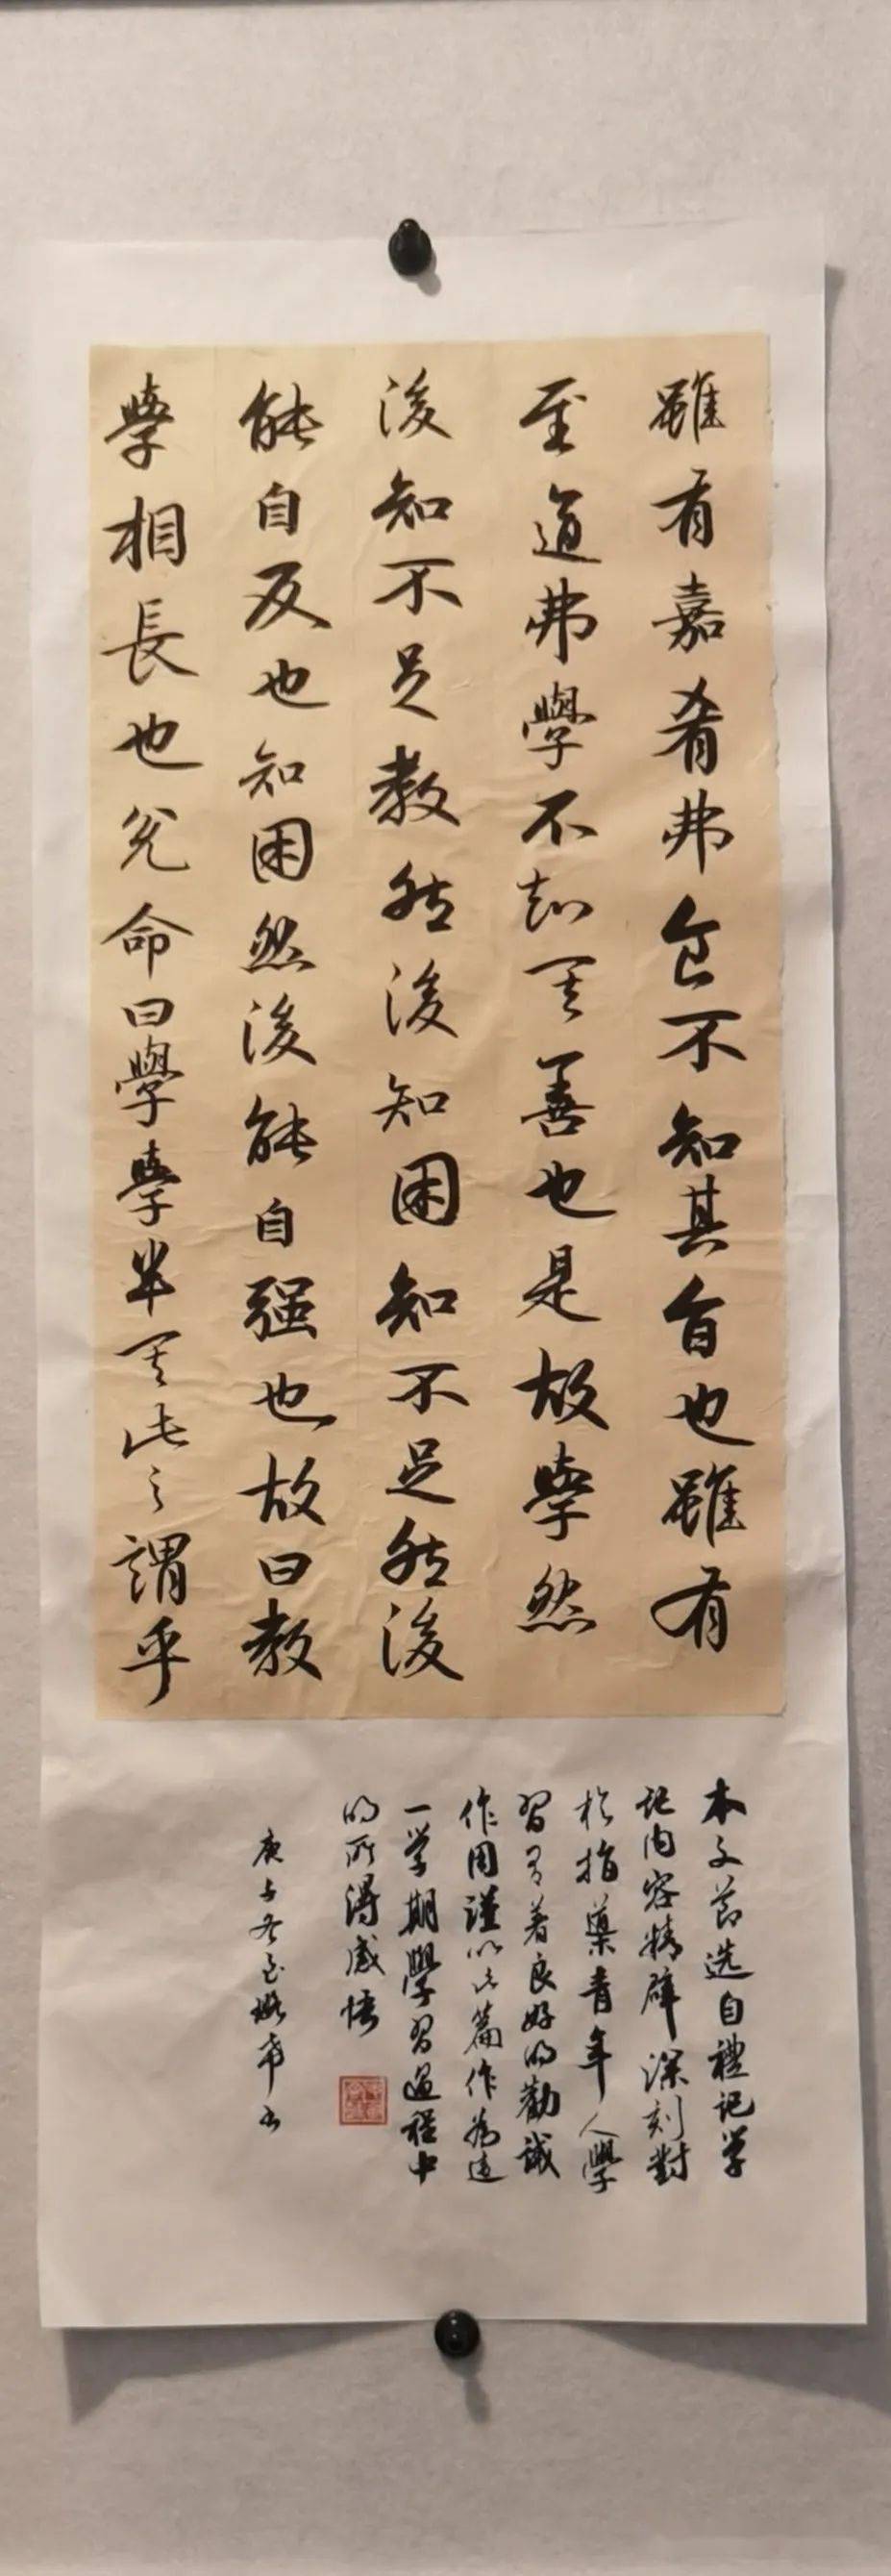 雖有嘉肴弗食不知其旨也雖有
至道弗學不知其善也是故學然
後知不足教然後知困知不足然後
能自反也知困然後能自强也故曰教
學相長也兌命曰學學半其此之謂乎
本文節选自禮記学
記内容精辟深刻對
於指導青年人學
習有着良好的勸誡
作用謹以此篇作為這
一学期學習過程中
的所得感悟
庚子冬至